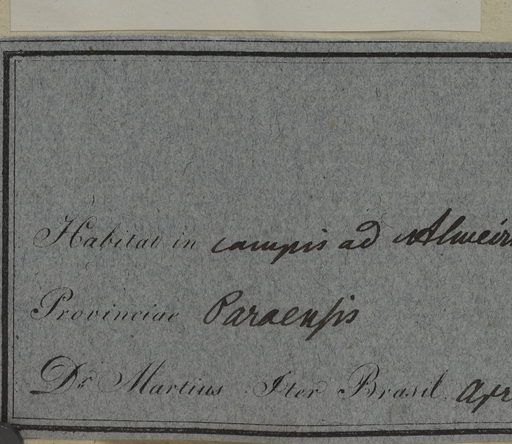 Habitat in campis ad Almeir
Provinciae Paraensis
Dr. Martius Iter Brasil. Apr